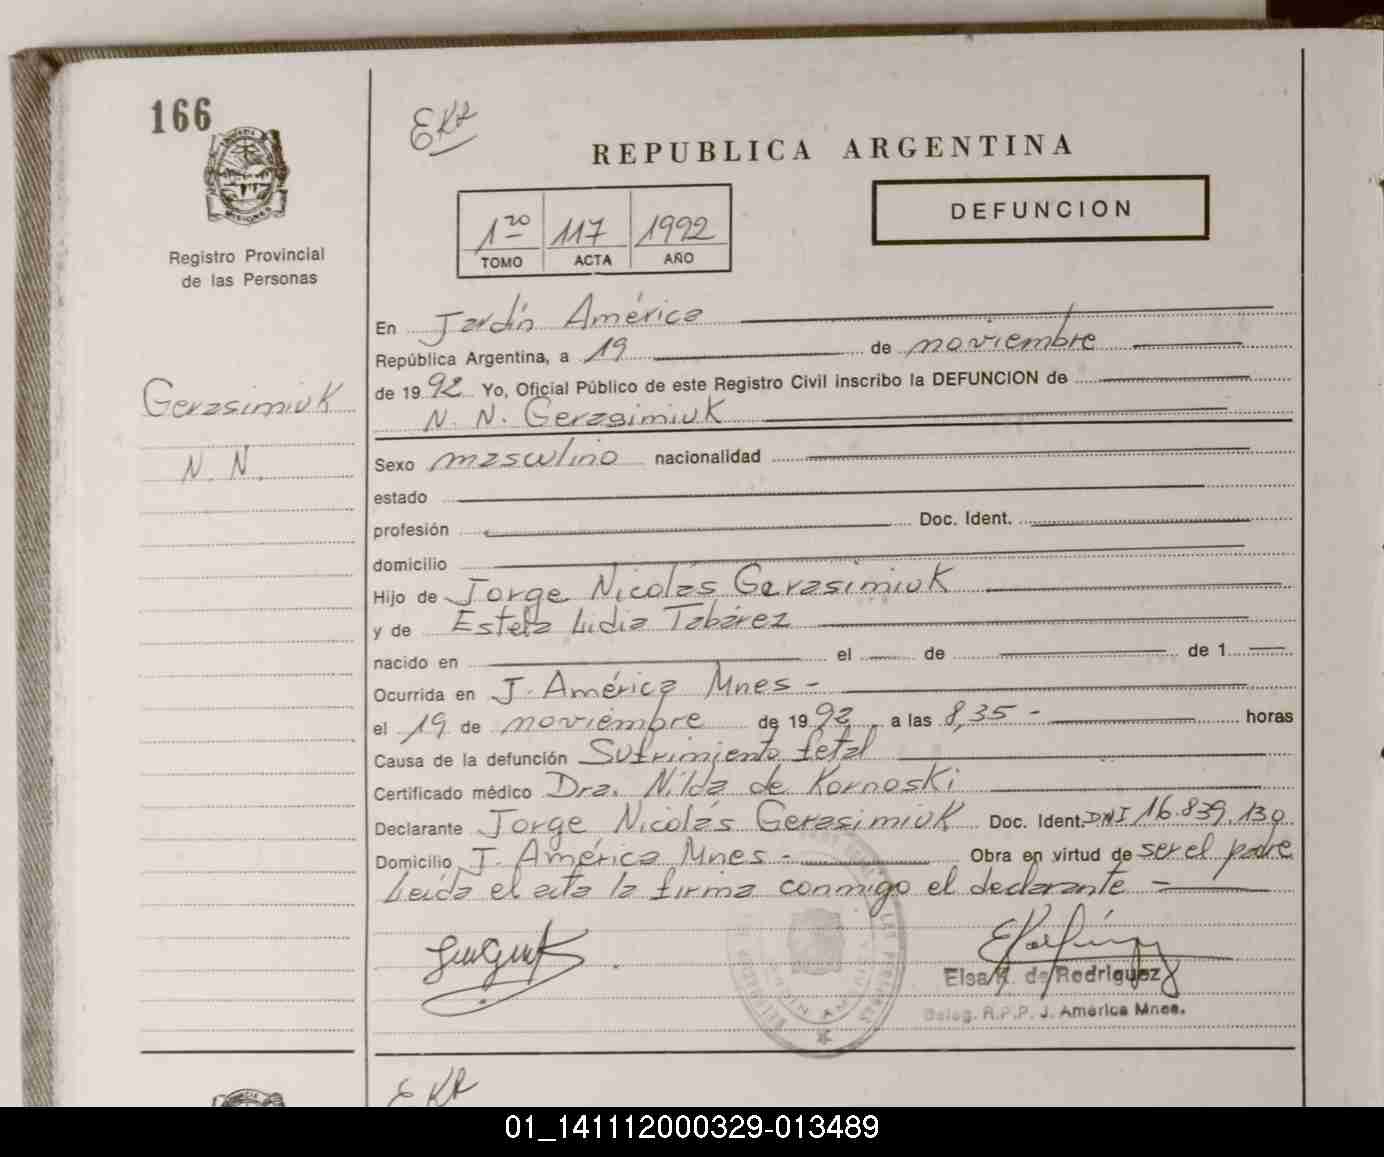 166
EKR
REPUBLICA ARGENTINA
MISIONES
Registro Provincial
de las Personas
DEFUNCION
1ro 117 1992
TOMO ACTA AÑO
En Jardín América
República Argentina, a 19 de noviembre
de 1992 Yo, Oficial Público de este Registro Civil inscribo la DEFUNCION de
N. N. Gerasimiuk
Gerasimiuk
N. N.
Sexo masculino nacionalidad
estado
profesión Doc. Ident.
domicilio
Hijo de Jorge Nicolás Gerasimiuk
y de Estela Lidia Tabárez
nacido en el de de 1
Ocurrida en J. América Mnes -
el 19 de noviembre de 1992 a las 8,35 - horas
Causa de la defunción Sufrimiento fetal
Certificado médico Dra. Nilda de Kornoski
Declarante Jorge Nicolás Gerasimiuk Doc. Ident. DNI 16.839.130
Domicilio J. América Mnes - Obra en virtud de ser el padre
Leída el acta la firma conmigo el declarante -
Elsa K. de Rodriguez
Deleg. R.P.P. J. América Mnes.
EKR
01_141112000329-013489